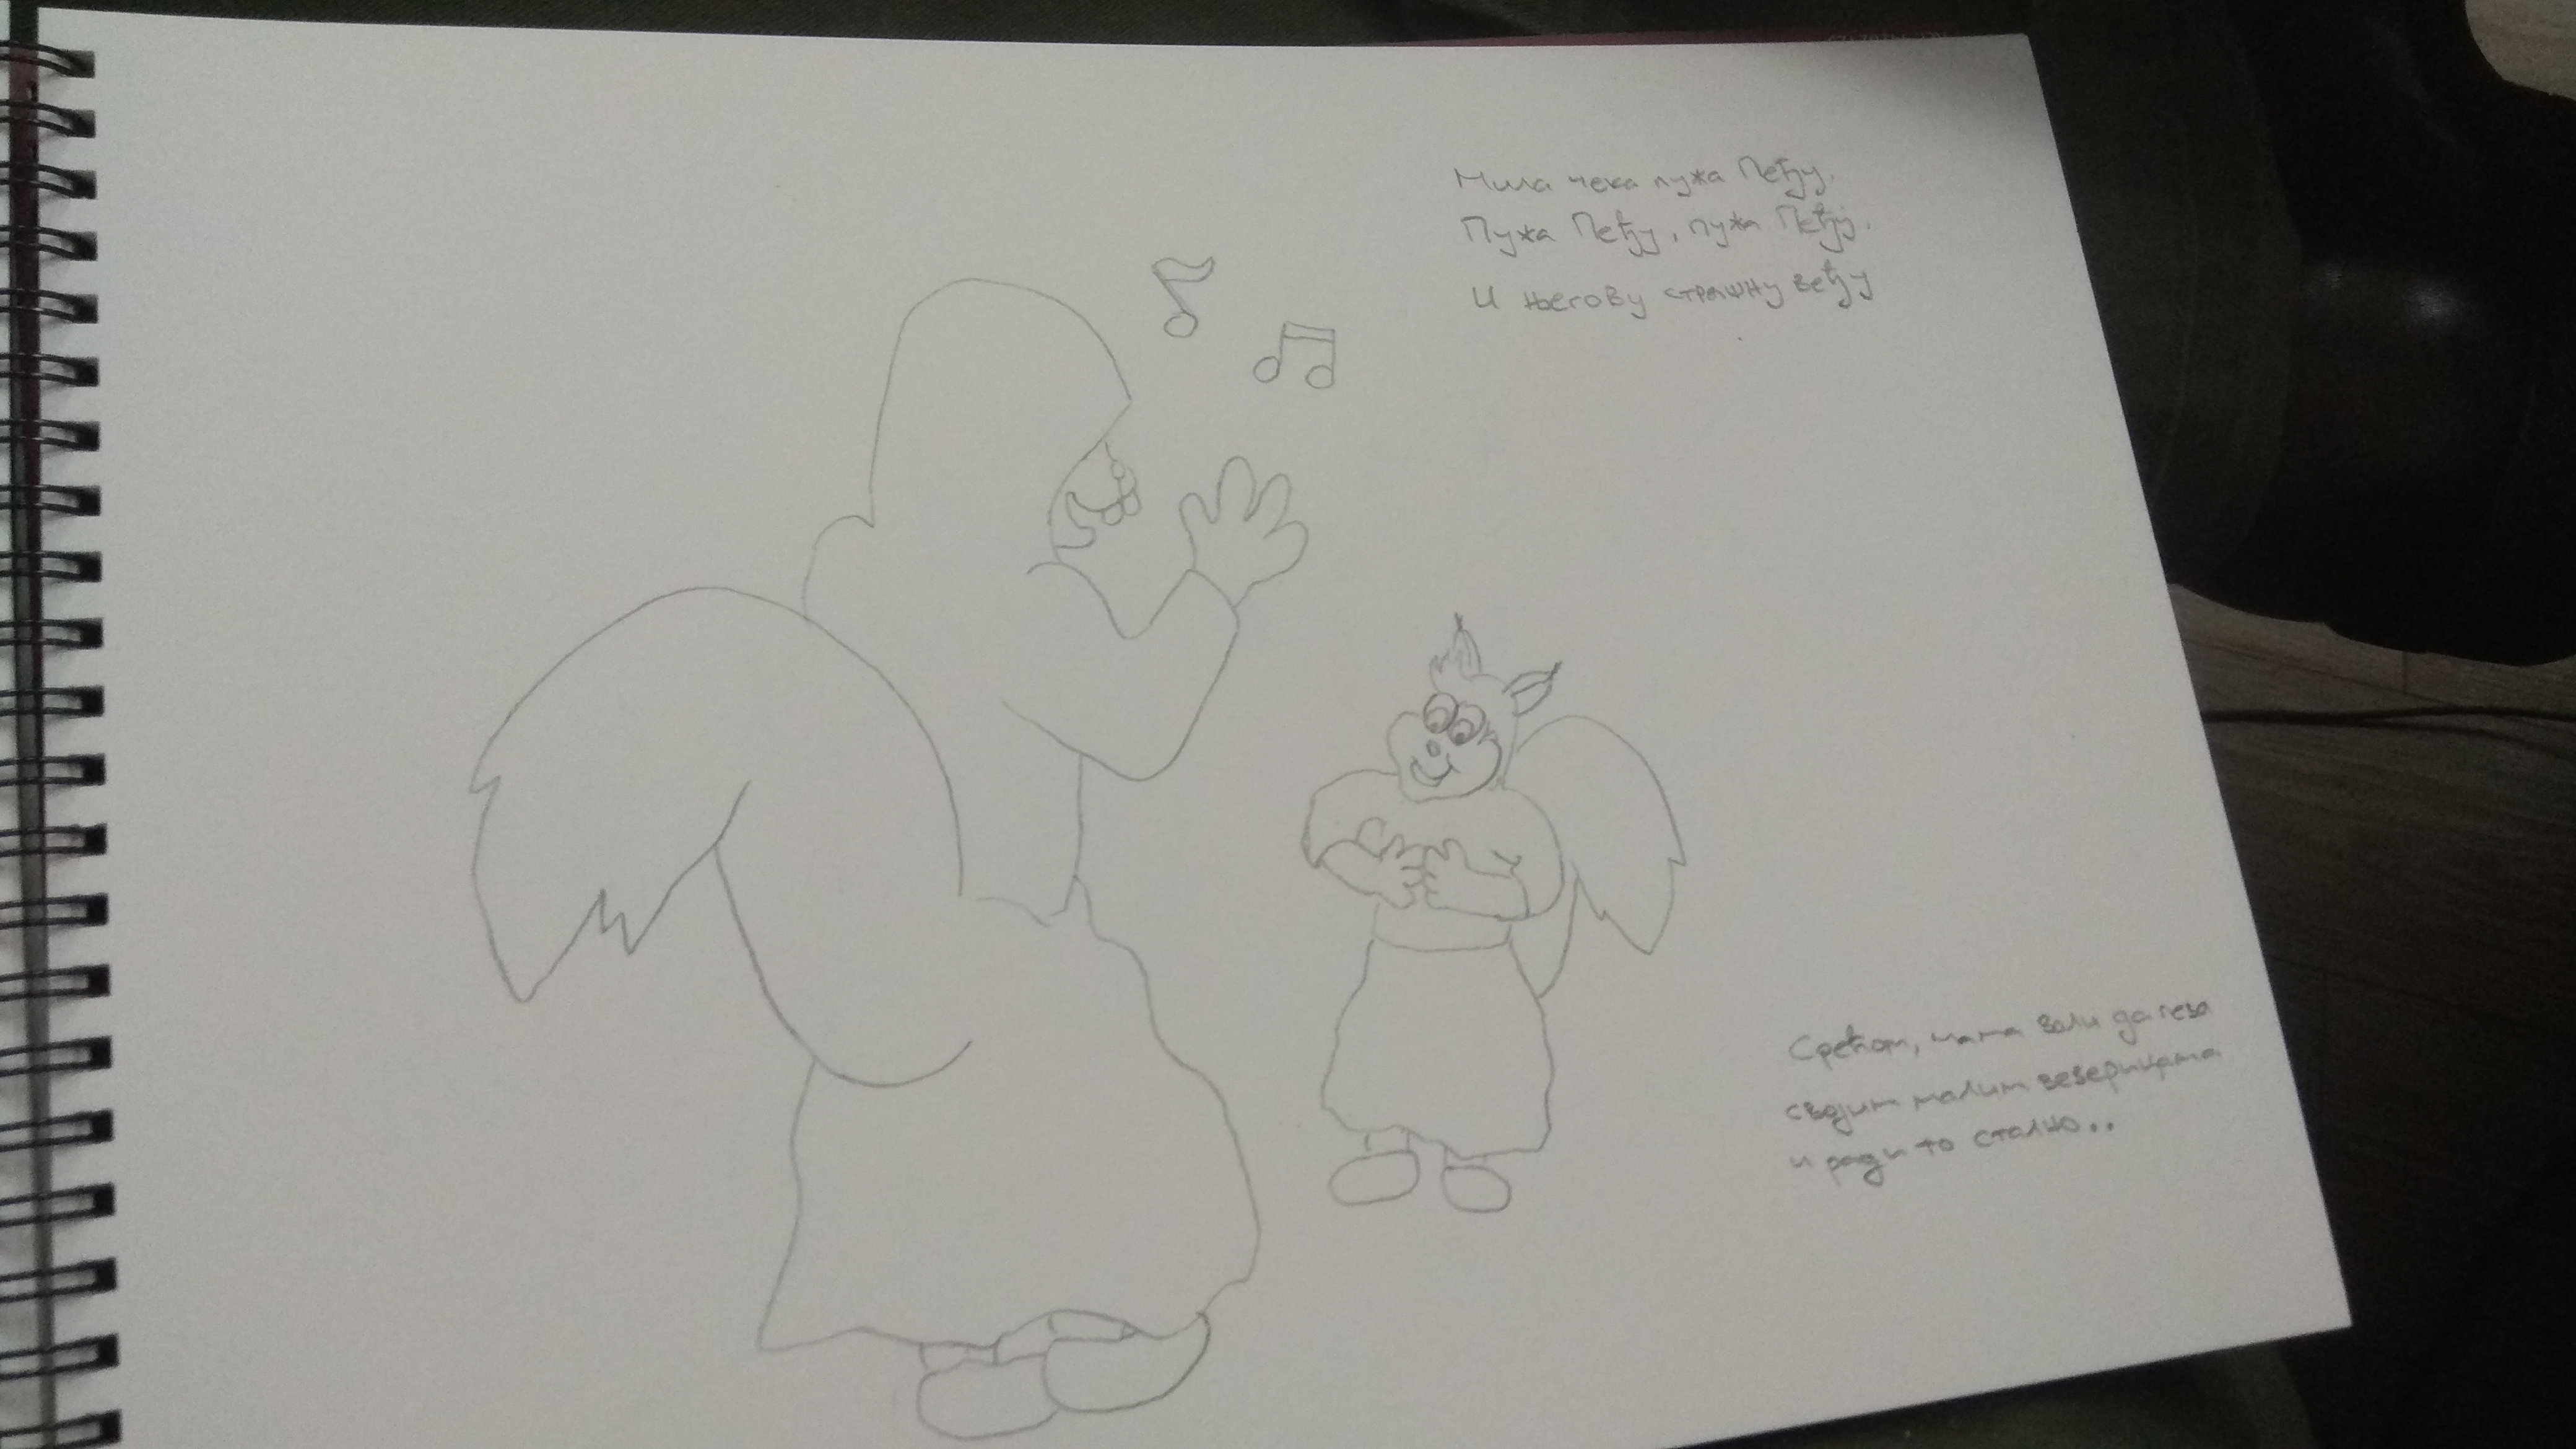 Мила чека пужа Пеђу,
Пужа Пеђу, пужа Пеђу,
И његову страшну веђу
Срећом, мама воли да пева
својим малим веверицама
и ради то стално..